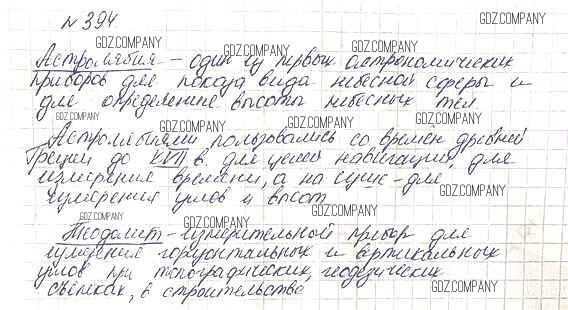 № 394
Астролябия - один из первых астрономических
приборов для показа вида небесной сферы и
для определение высоты небесных тел.
Астролябиями пользовались со времен древней
Греции до XVII в. для целей навигации, для
измерения времени, а на суше - для
измерения углов и высот
Теодолит - измерительный прибор для
измерения горизонтальных и вертикальных
углов при топографических, геодезических
съёмках, в строительстве
GDZ.COMPANY
GDZ.COMPANY
GDZ.COMPANY
GDZ.COMPANY
GDZ.COMPANY
GDZ.COMPANY
GDZ.COMPANY
GDZ.COMPANY
GDZ.COMPANY
GDZ.COMPANY
GDZ.COMPANY
GDZ.COMPANY
GDZ.COMPANY
GDZ.COMPANY